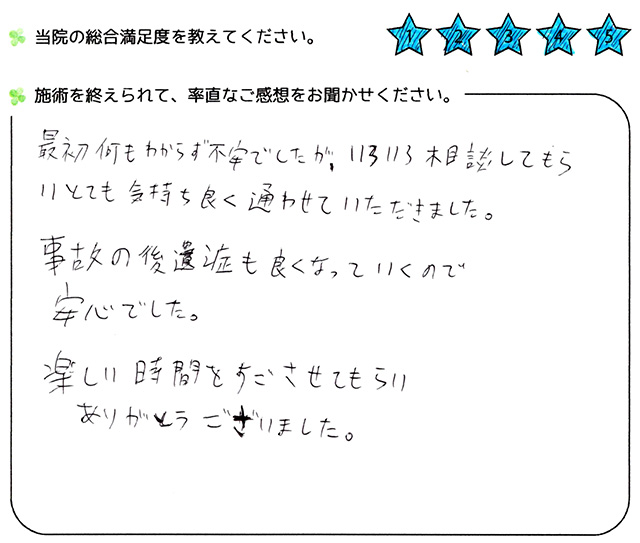 当院の総合満足度を教えてください。
1 2 3 4 5
施術を終えられて、率直なご感想をお聞かせください。
最初何もわからず不安でしたが、いろいろ相談してもら
いとても気持ち良く通わせていただきました。
事故の後遺症も良くなっていくので
安心でした。
楽しい時間をすごさせてもらい
ありがとうございました。